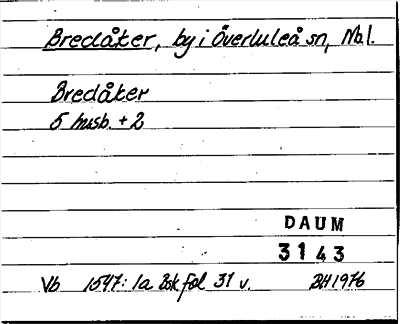 Bredåker, by i Överluleå sn, Nb.l.
Bredåker
5 husb. + 2
DAUM
3143
Vb 1547: 1a Bsk fol 31 v. BH 1976